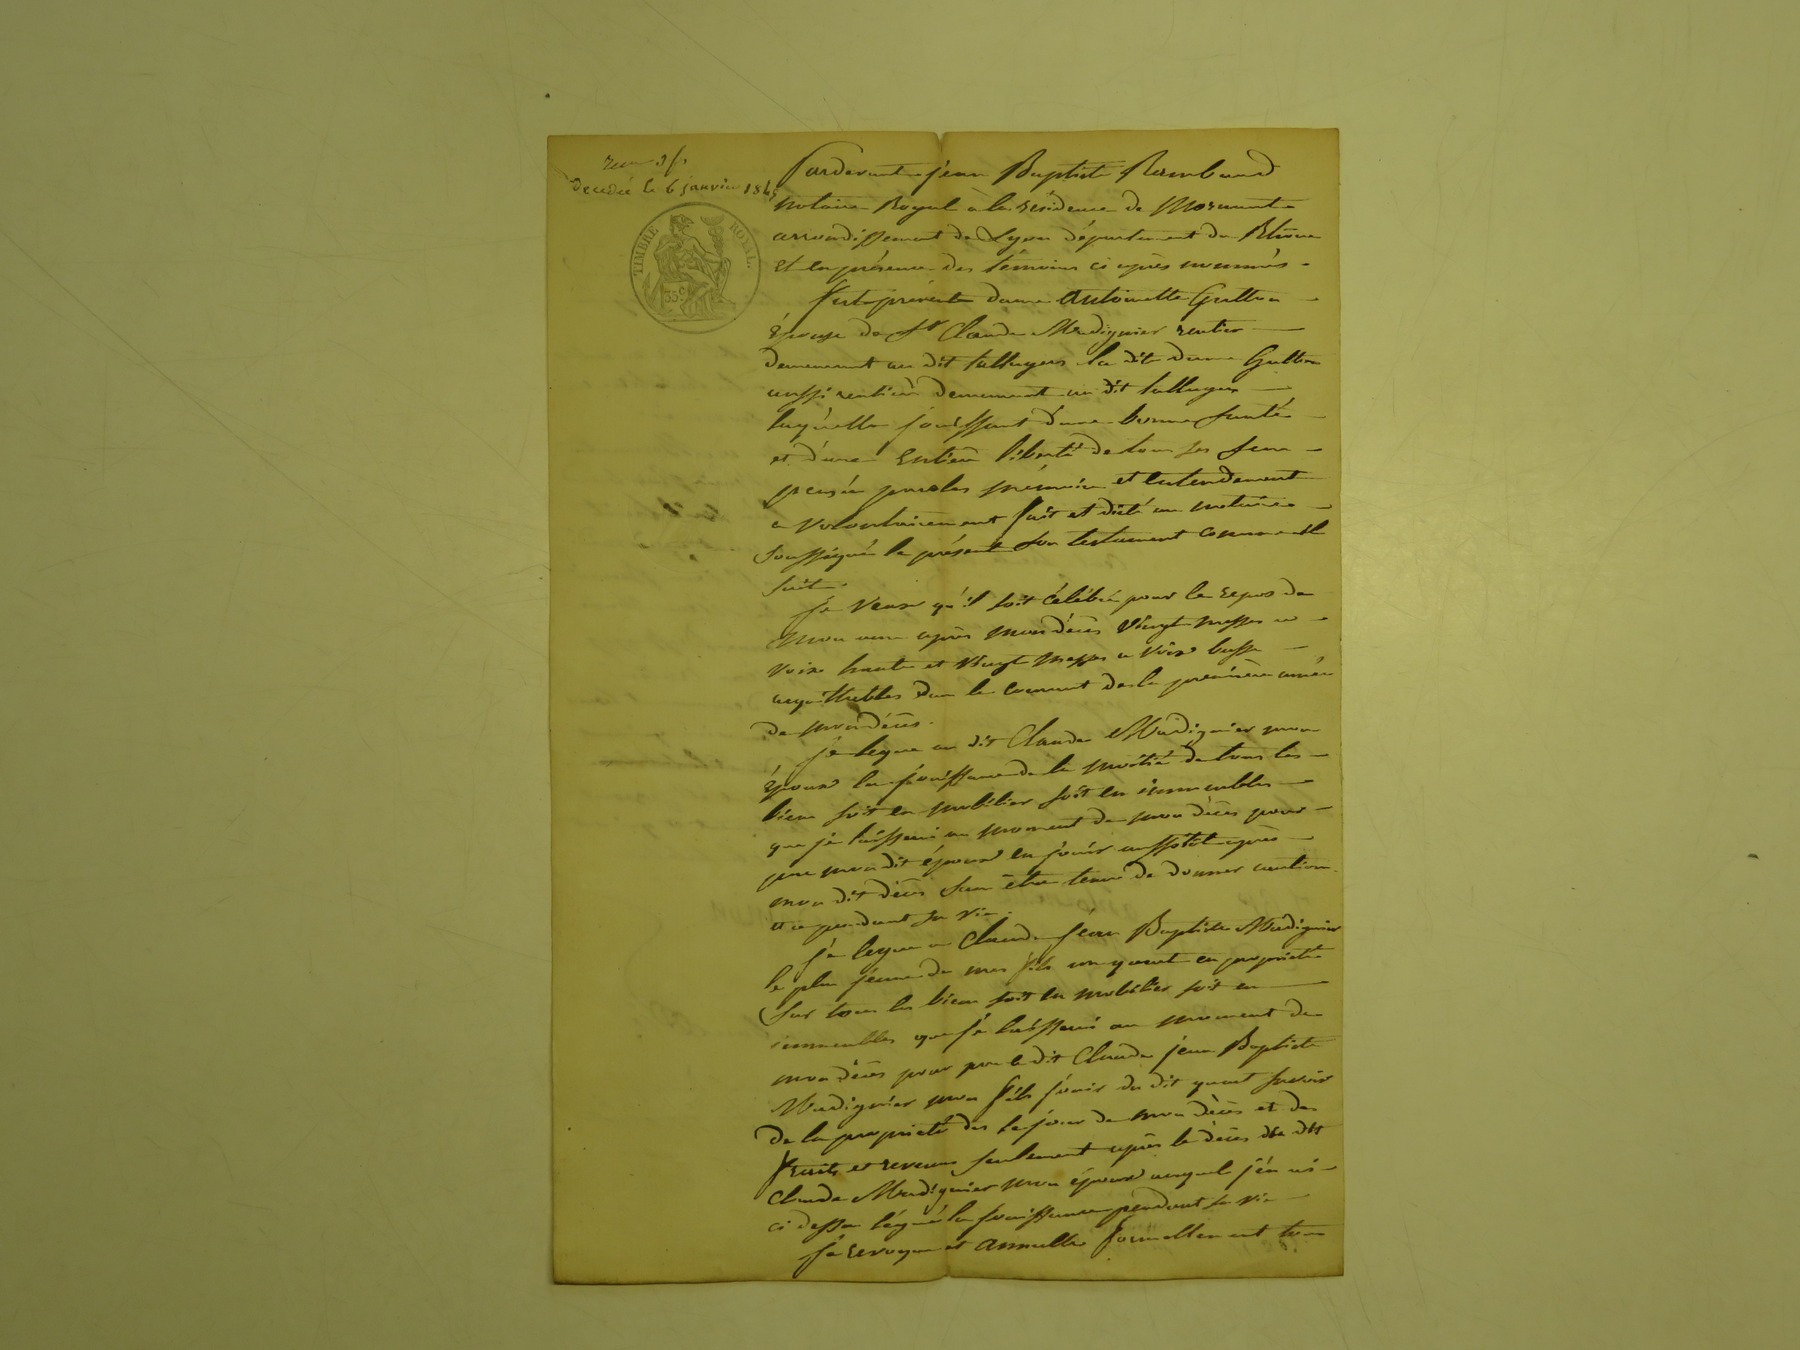 decedée le 6 janvier 1845
TIMBRE ROYAL.
35c
Pardevant jean Baptiste Rambaud
notaire Royal à la résidence de Mornant
arrondissement de Lyon département du Rhône
et en présence des témoins ci après nommés
fut présente dame Antoinette Gutton
épouse de Sr Claude Mudignier rentier
demeurant au dit talluyers la dite dame Gutton
aussi rentière demeurant au dit talluyers
laquelle jouissant d'une bonne santé
et d'une entière liberté de tous ses sens
pensée paroles mémoire et entendement
a volontairement fait et dicté au notaire
soussigné le présent son testament comme il
suit.
je veux qu'il soit célébré pour le repos de
mon ame après mon décès vingt messes a
voix haute et vingt messes a voix basse
acquittables dans le courant de la première année
de mon décès.
je legue au dit Claude Mudignier mon
époux la jouissance de la moitié de tous les
biens soit en mobilier soit en immeubles
que je laisserai au moment de mon décès pour
par mon dit époux en jouir aussitôt après
mon dit décès sans être tenu de donner caution
et ce pendant sa vie.
je legue a Claude jean Baptiste Mudignier
le plus jeune de mes fils un quart en propriété
sur tous les biens soit en mobilier soit en
immeubles que je laisserai au moment de
mon décès pour par le dit Claude jean Baptiste
Mudignier mon fils jouir du dit quart savoir
de la propriété dès le jour de mon décès et des
fruits et revenus seulement après le décès de dit
Claude Mudignier mon époux auquel j'en ai
ci dessus légué la jouissance pendant sa vie
je revoque et annulle formellement tous